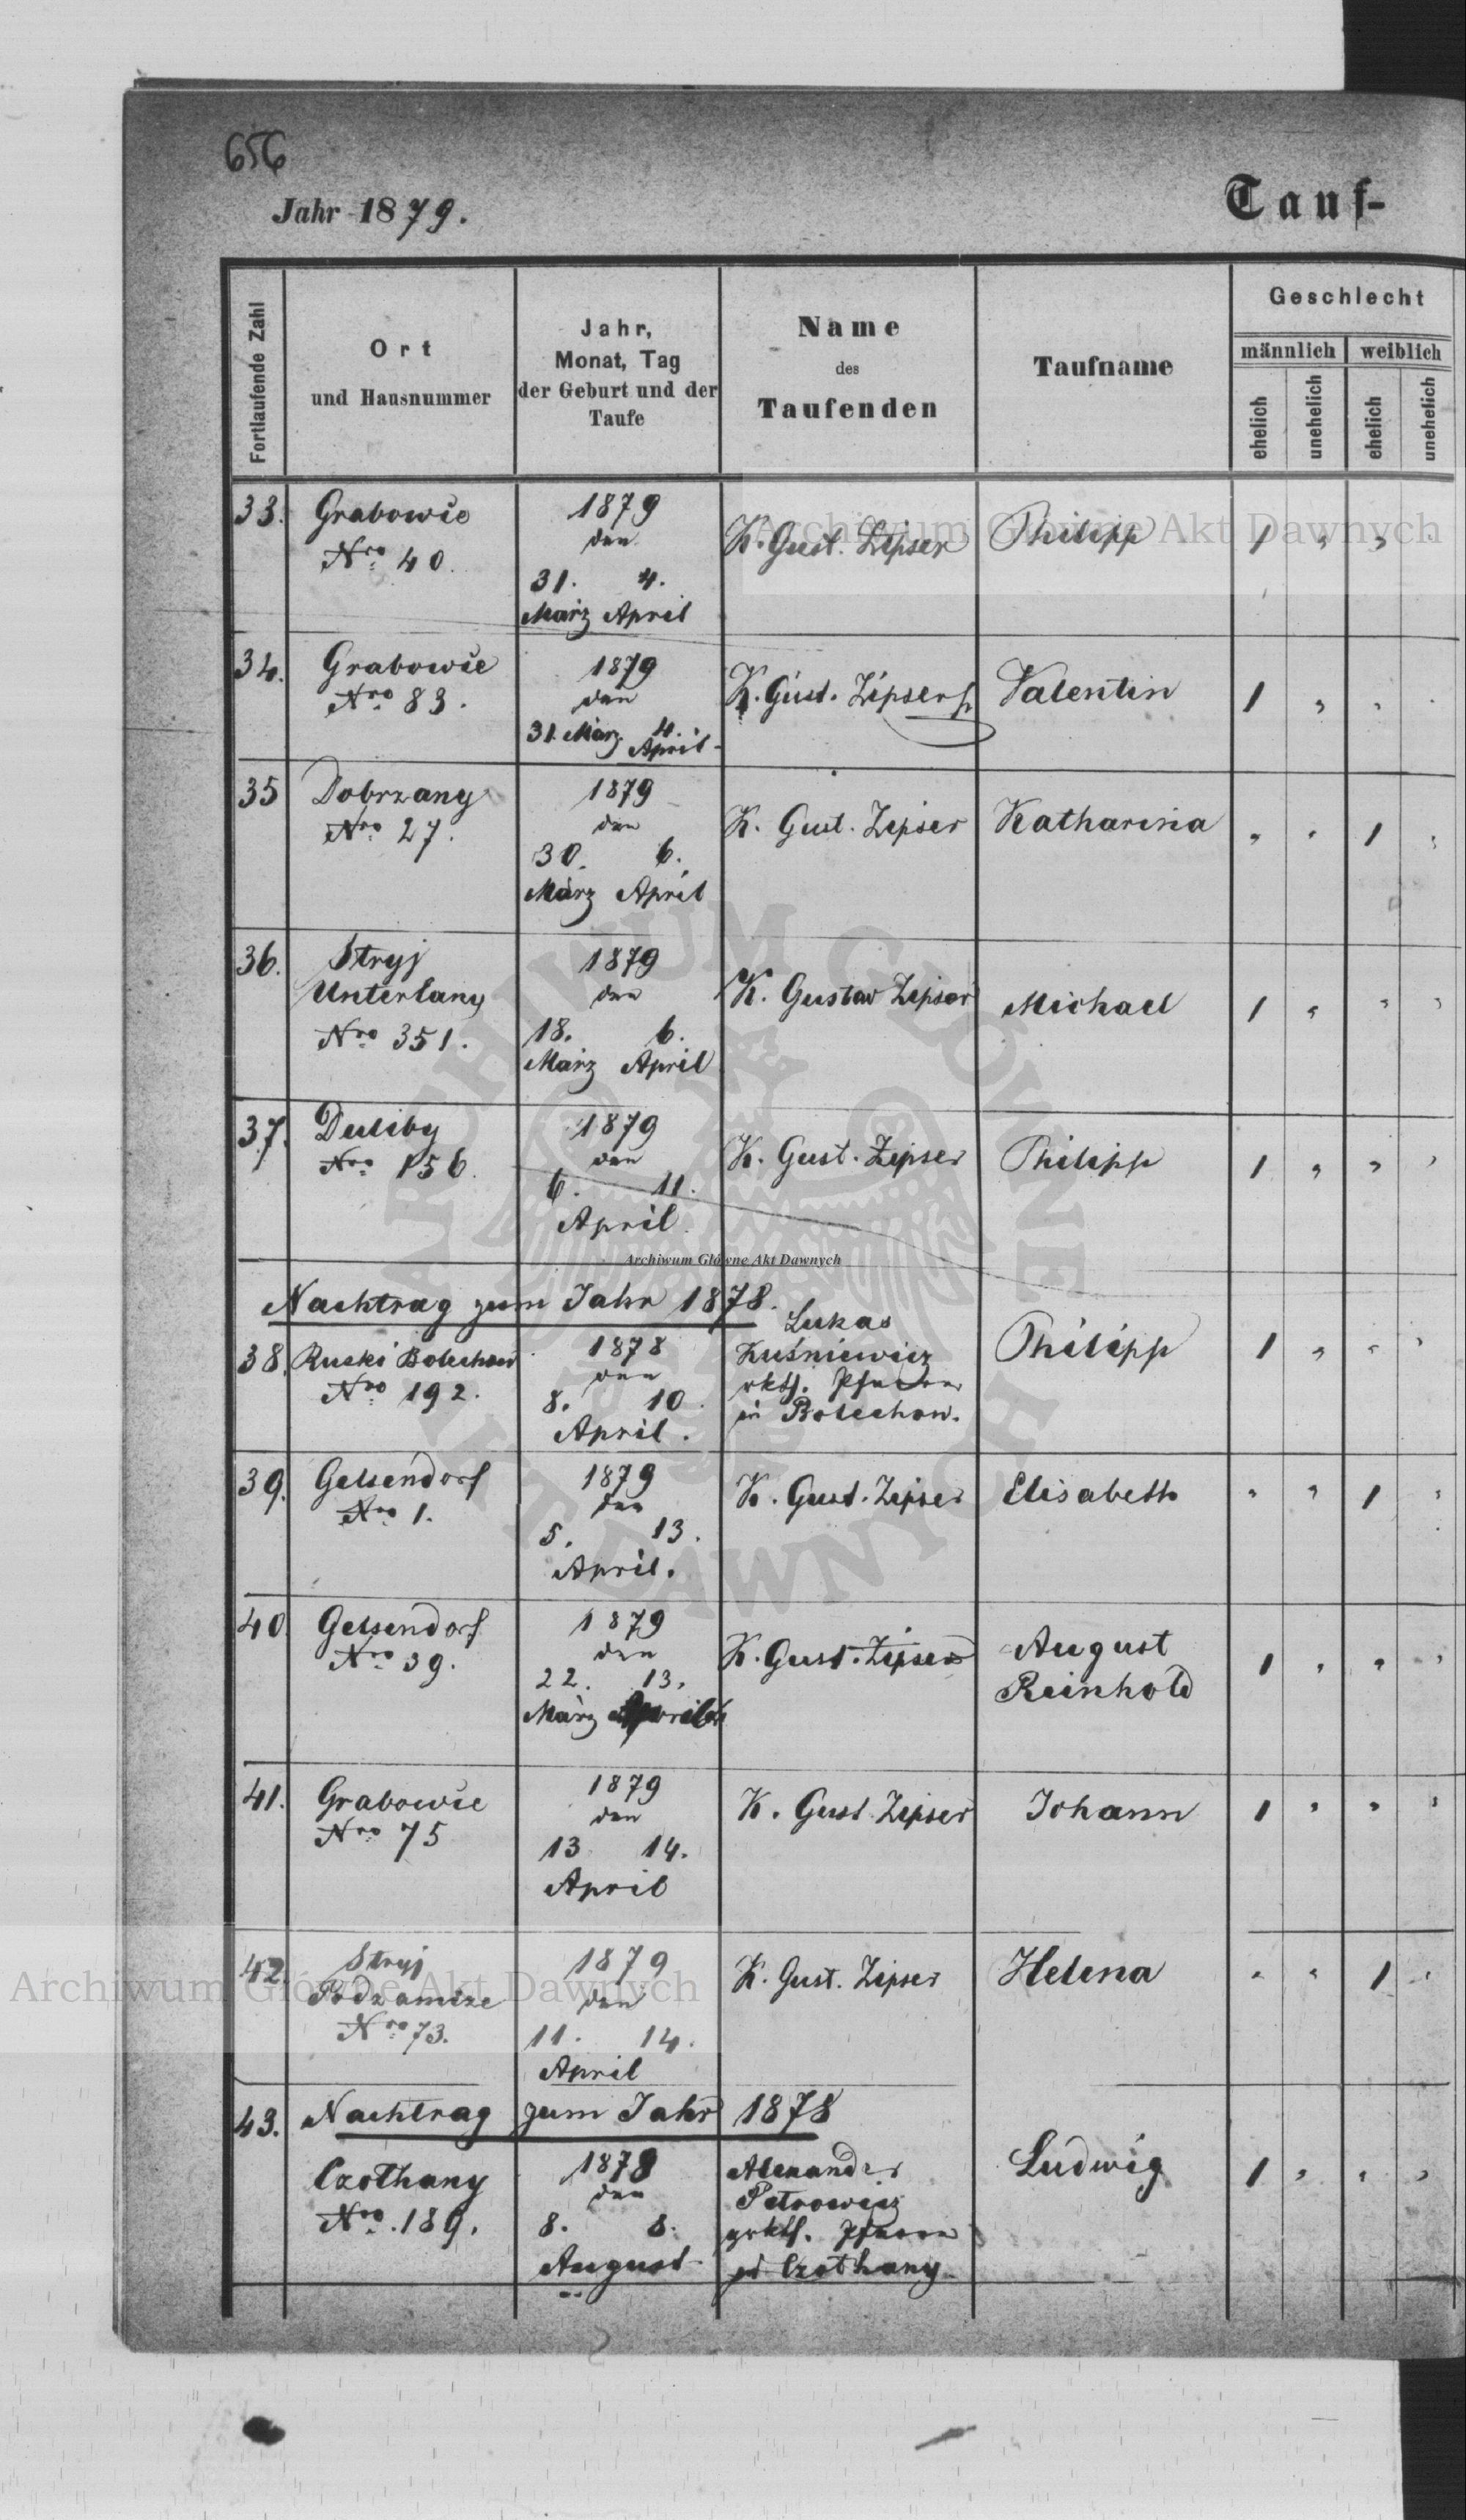 656
Jahr 1879.
Tauf-
Fortlaufende Zahl
Ort
und Hausnummer
Jahr,
Monat, Tag
der Geburt und der
Taufe
Name
des
Taufenden
Taufname
Geschlecht
männlich weiblich
ehelich
unehelich
ehelich
unehelich
33. Grabowie
Nro 40.
1879
den
31. 4.
März April
K. Gust. Zipser
Philipp
1 " " "
Archiwum Główne Akt Dawnych
34. Grabowie
Nro 83.
1879
den
31. März 4.
April
K. Gust. Zipser
Valentin
1 " " "
35 Dobrzany
Nro 27.
1879
den
30. 6.
März April
K. Gust. Zipser
Katharina
" " 1 "
36. Stryj
Unterlany
Nro 351.
1879
den
18. 6.
März April
K. Gustav Zipser
Michael
1 " " "
37. Duliby
Nro 156
1879
den
6. 11.
April
K. Gust. Zipser
Philipp
1 " " "
ARCHIWUM GŁÓWNE
AKT DAWNYCH
Archiwum Główne Akt Dawnych
Nachtrag zum Jahr 1878.
38. Ruski Bolechow
Nro 192.
1878
den
8. 10.
April.
Lukas
Kuśniewicz
rkth. Pfarrer
in Bolechow.
Philipp
1 " " "
39. Gelsendorf
Nro 1.
1879
den
5. 13.
April.
K. Gust. Zipser
Elisabeth
" " 1 "
40. Gelsendorf
Nro 39.
1879
den
22. 13.
März April
K. Gust. Zipser
August
Reinhold
1 " " "
41. Grabowie
Nro 75
1879
den
13 14.
April
K. Gust. Zipser
Johann
1 " " "
42. Stryj
Podzamcze
Nro 73.
1879
den
11. 14.
April
K. Gust. Zipser
Helena
" " 1 "
Archiwum Główne Akt Dawnych
43. Nachtrag zum Jahr 1878
Czolhany
Nro. 189.
1878
den
8. 8.
August
Alexander
Petrowicz
grkth. Pfarrer
in Czolhany
Ludwig
1 " " "